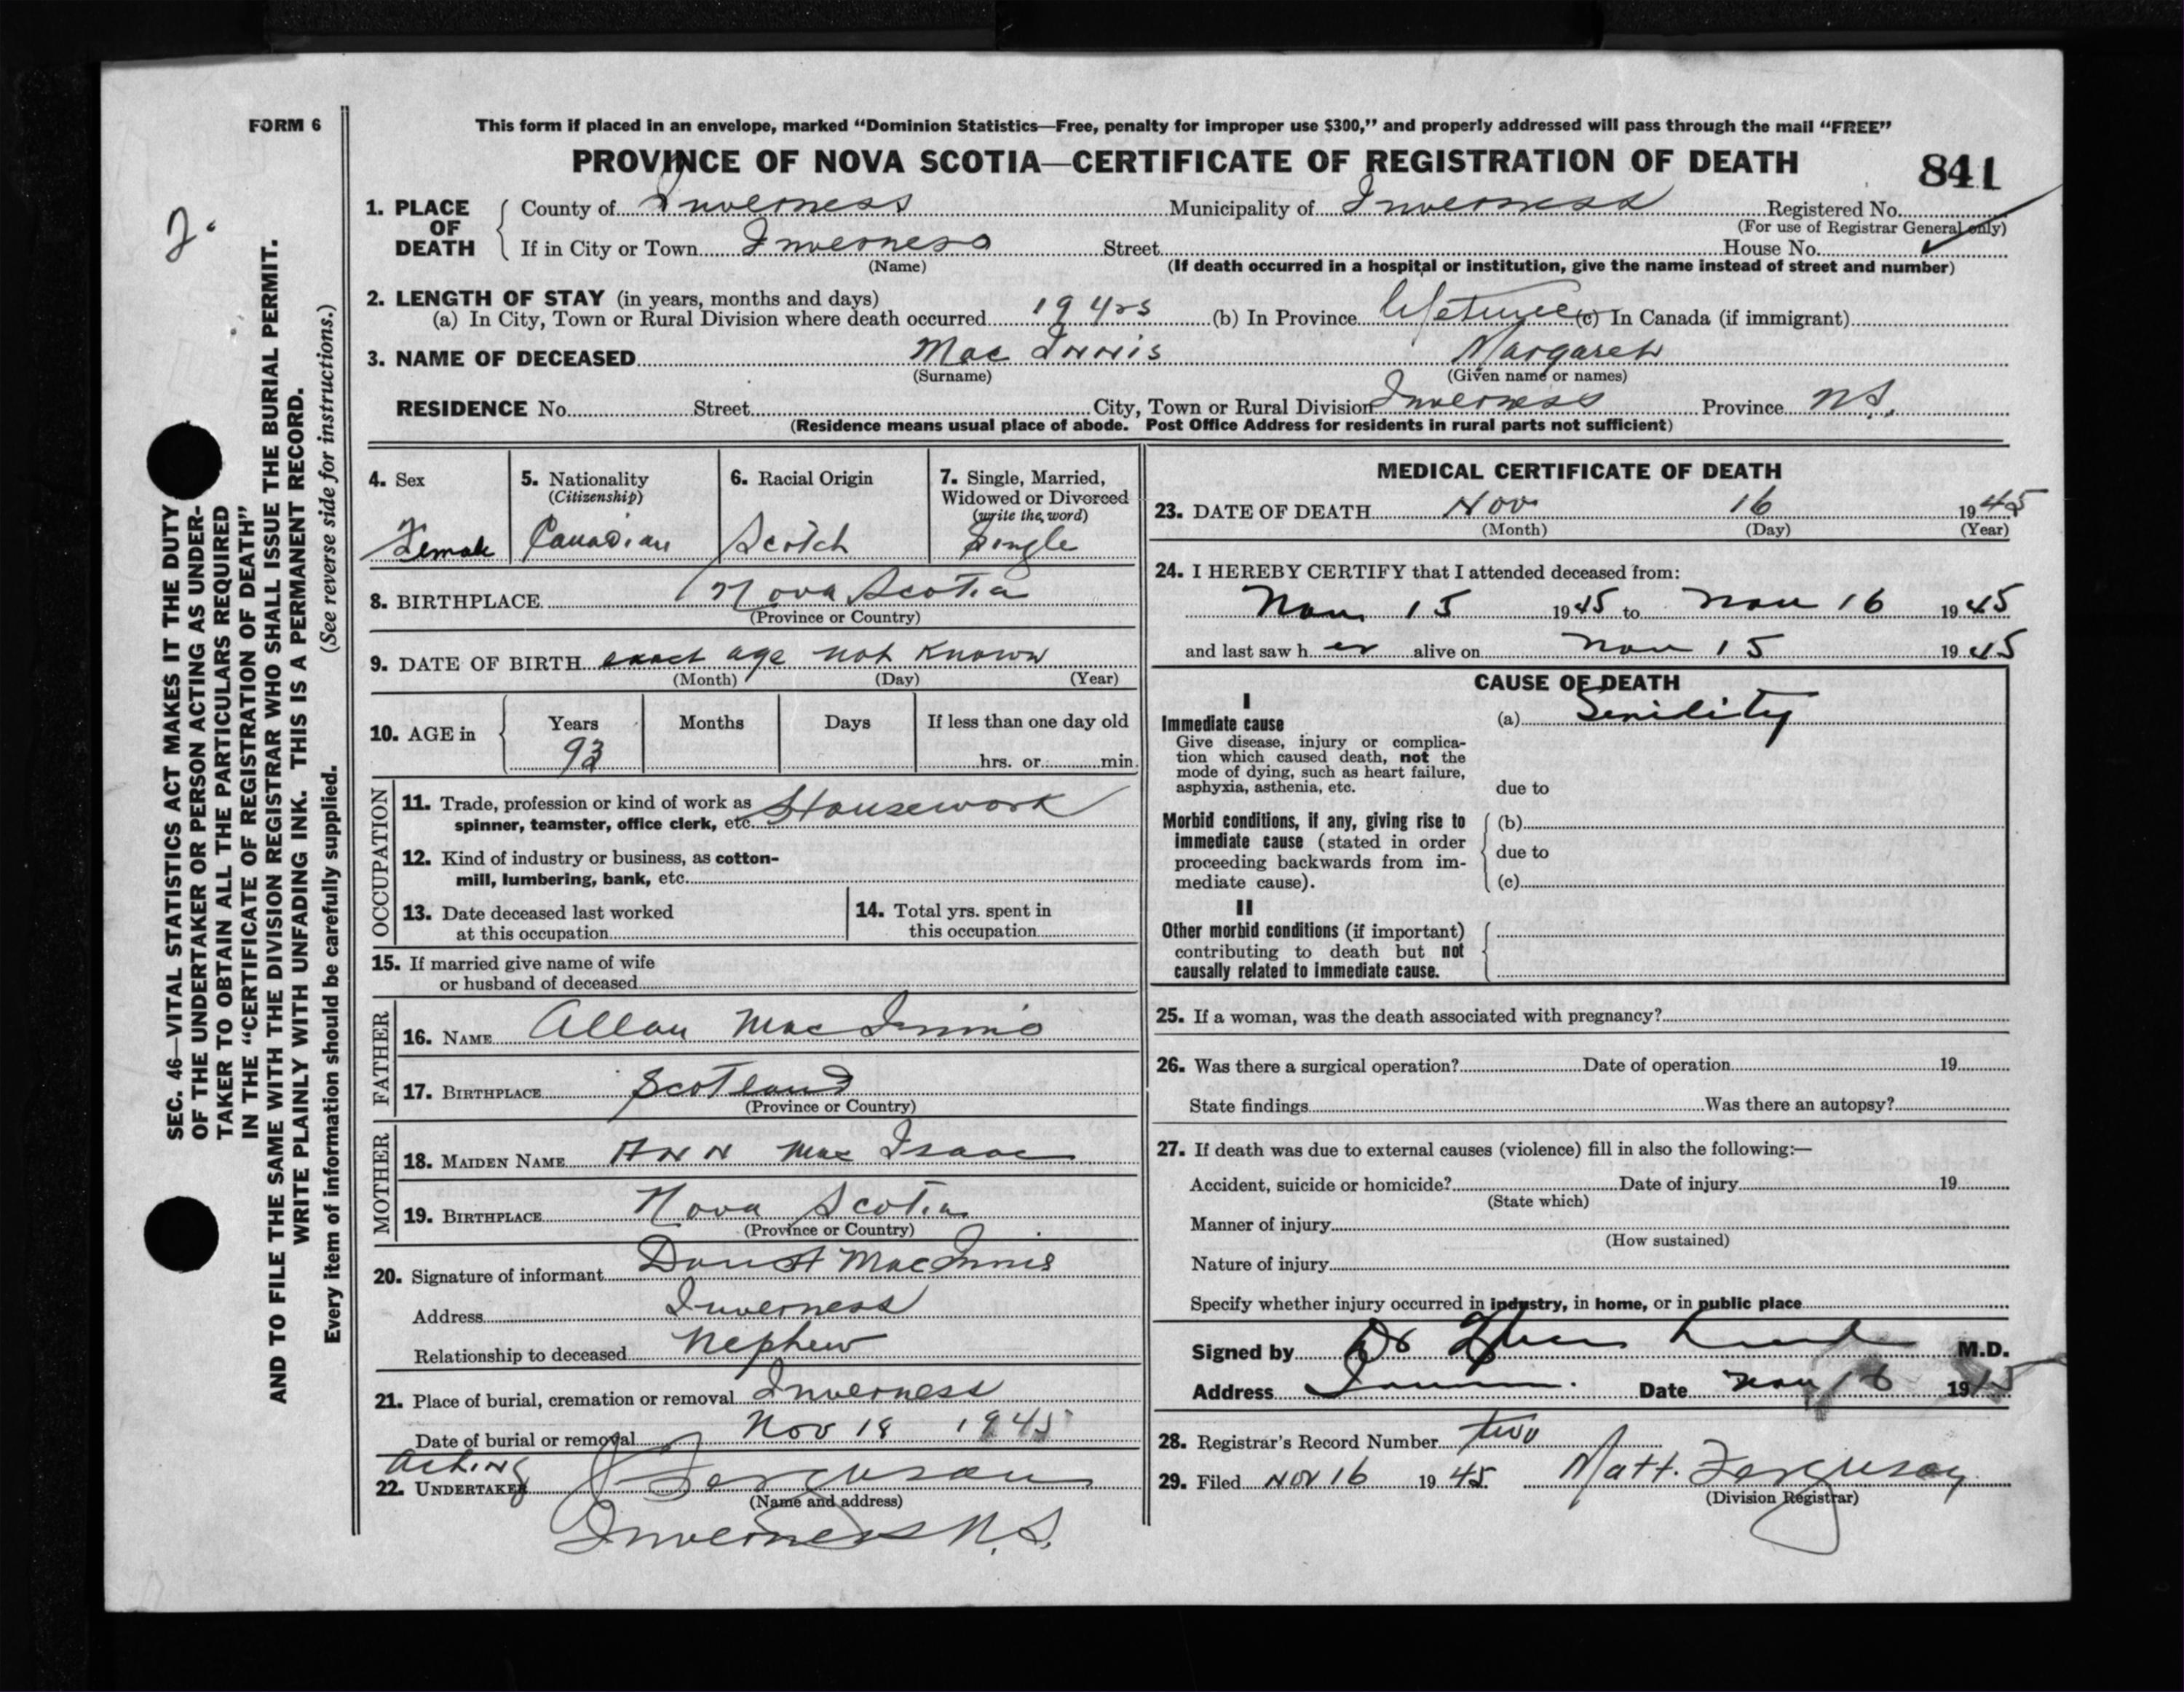 FORM 6
This form if placed in an envelope, marked “Dominion Statistics—Free, penalty for improper use $300,” and properly addressed will pass through the mail “FREE”
PROVINCE OF NOVA SCOTIA—CERTIFICATE OF REGISTRATION OF DEATH
841
2.
SEC. 46—VITAL STATISTICS ACT MAKES IT THE DUTY
OF THE UNDERTAKER OR PERSON ACTING AS UNDER-
TAKER TO OBTAIN ALL THE PARTICULARS REQUIRED
IN THE “CERTIFICATE OF REGISTRATION OF DEATH”
AND TO FILE THE SAME WITH THE DIVISION REGISTRAR WHO SHALL ISSUE THE BURIAL PERMIT.
WRITE PLAINLY WITH UNFADING INK. THIS IS A PERMANENT RECORD.
Every item of information should be carefully supplied. (See reverse side for instructions.)
1. PLACE OF DEATH
County of Inverness Municipality of Inverness Registered No.
(For use of Registrar General only)
If in City or Town Inverness Street House No.
(Name) (If death occurred in a hospital or institution, give the name instead of street and number)
2. LENGTH OF STAY (in years, months and days)
(a) In City, Town or Rural Division where death occurred 19 yrs (b) In Province lifetime (c) In Canada (if immigrant)
3. NAME OF DECEASED Mac Innis Margaret
(Surname) (Given name or names)
RESIDENCE No. Street City, Town or Rural Division Inverness Province N.S.
(Residence means usual place of abode. Post Office Address for residents in rural parts not sufficient)
4. Sex
Female
5. Nationality
(Citizenship)
Canadian
6. Racial Origin
Scotch
7. Single, Married,
Widowed or Divorced
(write the word)
Single
8. BIRTHPLACE Nova Scotia
(Province or Country)
9. DATE OF BIRTH exact age not known
(Month) (Day) (Year)
10. AGE in Years Months Days If less than one day old
93 hrs. or min.
OCCUPATION
11. Trade, profession or kind of work as
spinner, teamster, office clerk, etc. Housework
12. Kind of industry or business, as cotton-
mill, lumbering, bank, etc.
13. Date deceased last worked
at this occupation
14. Total yrs. spent in
this occupation
15. If married give name of wife
or husband of deceased
FATHER
16. NAME Allan MacInnis
17. BIRTHPLACE Scotland
(Province or Country)
MOTHER
18. MAIDEN NAME Ann Mac Isaac
19. BIRTHPLACE Nova Scotia
(Province or Country)
20. Signature of informant MacInnis
Address Inverness
Relationship to deceased Nephew
21. Place of burial, cremation or removal Inverness
Date of burial or removal Nov 18 1945
Acting
22. UNDERTAKER Ferguson
(Name and address)
Inverness N.S.
MEDICAL CERTIFICATE OF DEATH
23. DATE OF DEATH Nov 16 1945
(Month) (Day) (Year)
24. I HEREBY CERTIFY that I attended deceased from:
Nov 15 1945 to Nov 16 1945
and last saw h er alive on Nov 15 1945
CAUSE OF DEATH
I
Immediate cause
Give disease, injury or complica-
tion which caused death, not the
mode of dying, such as heart failure,
asphyxia, asthenia, etc.
(a) Senility
due to
Morbid conditions, if any, giving rise to
immediate cause (stated in order
proceeding backwards from im-
mediate cause).
(b)
due to
(c)
II
Other morbid conditions (if important)
contributing to death but not
causally related to immediate cause.
25. If a woman, was the death associated with pregnancy?
26. Was there a surgical operation? Date of operation 19
State findings Was there an autopsy?
27. If death was due to external causes (violence) fill in also the following:—
Accident, suicide or homicide? Date of injury 19
(State which)
Manner of injury
(How sustained)
Nature of injury
Specify whether injury occurred in industry, in home, or in public place
Signed by Dr M.D.
Address Date Nov 16 1945
28. Registrar's Record Number two
29. Filed Nov 16 1945 Matt. Ferguson
(Division Registrar)